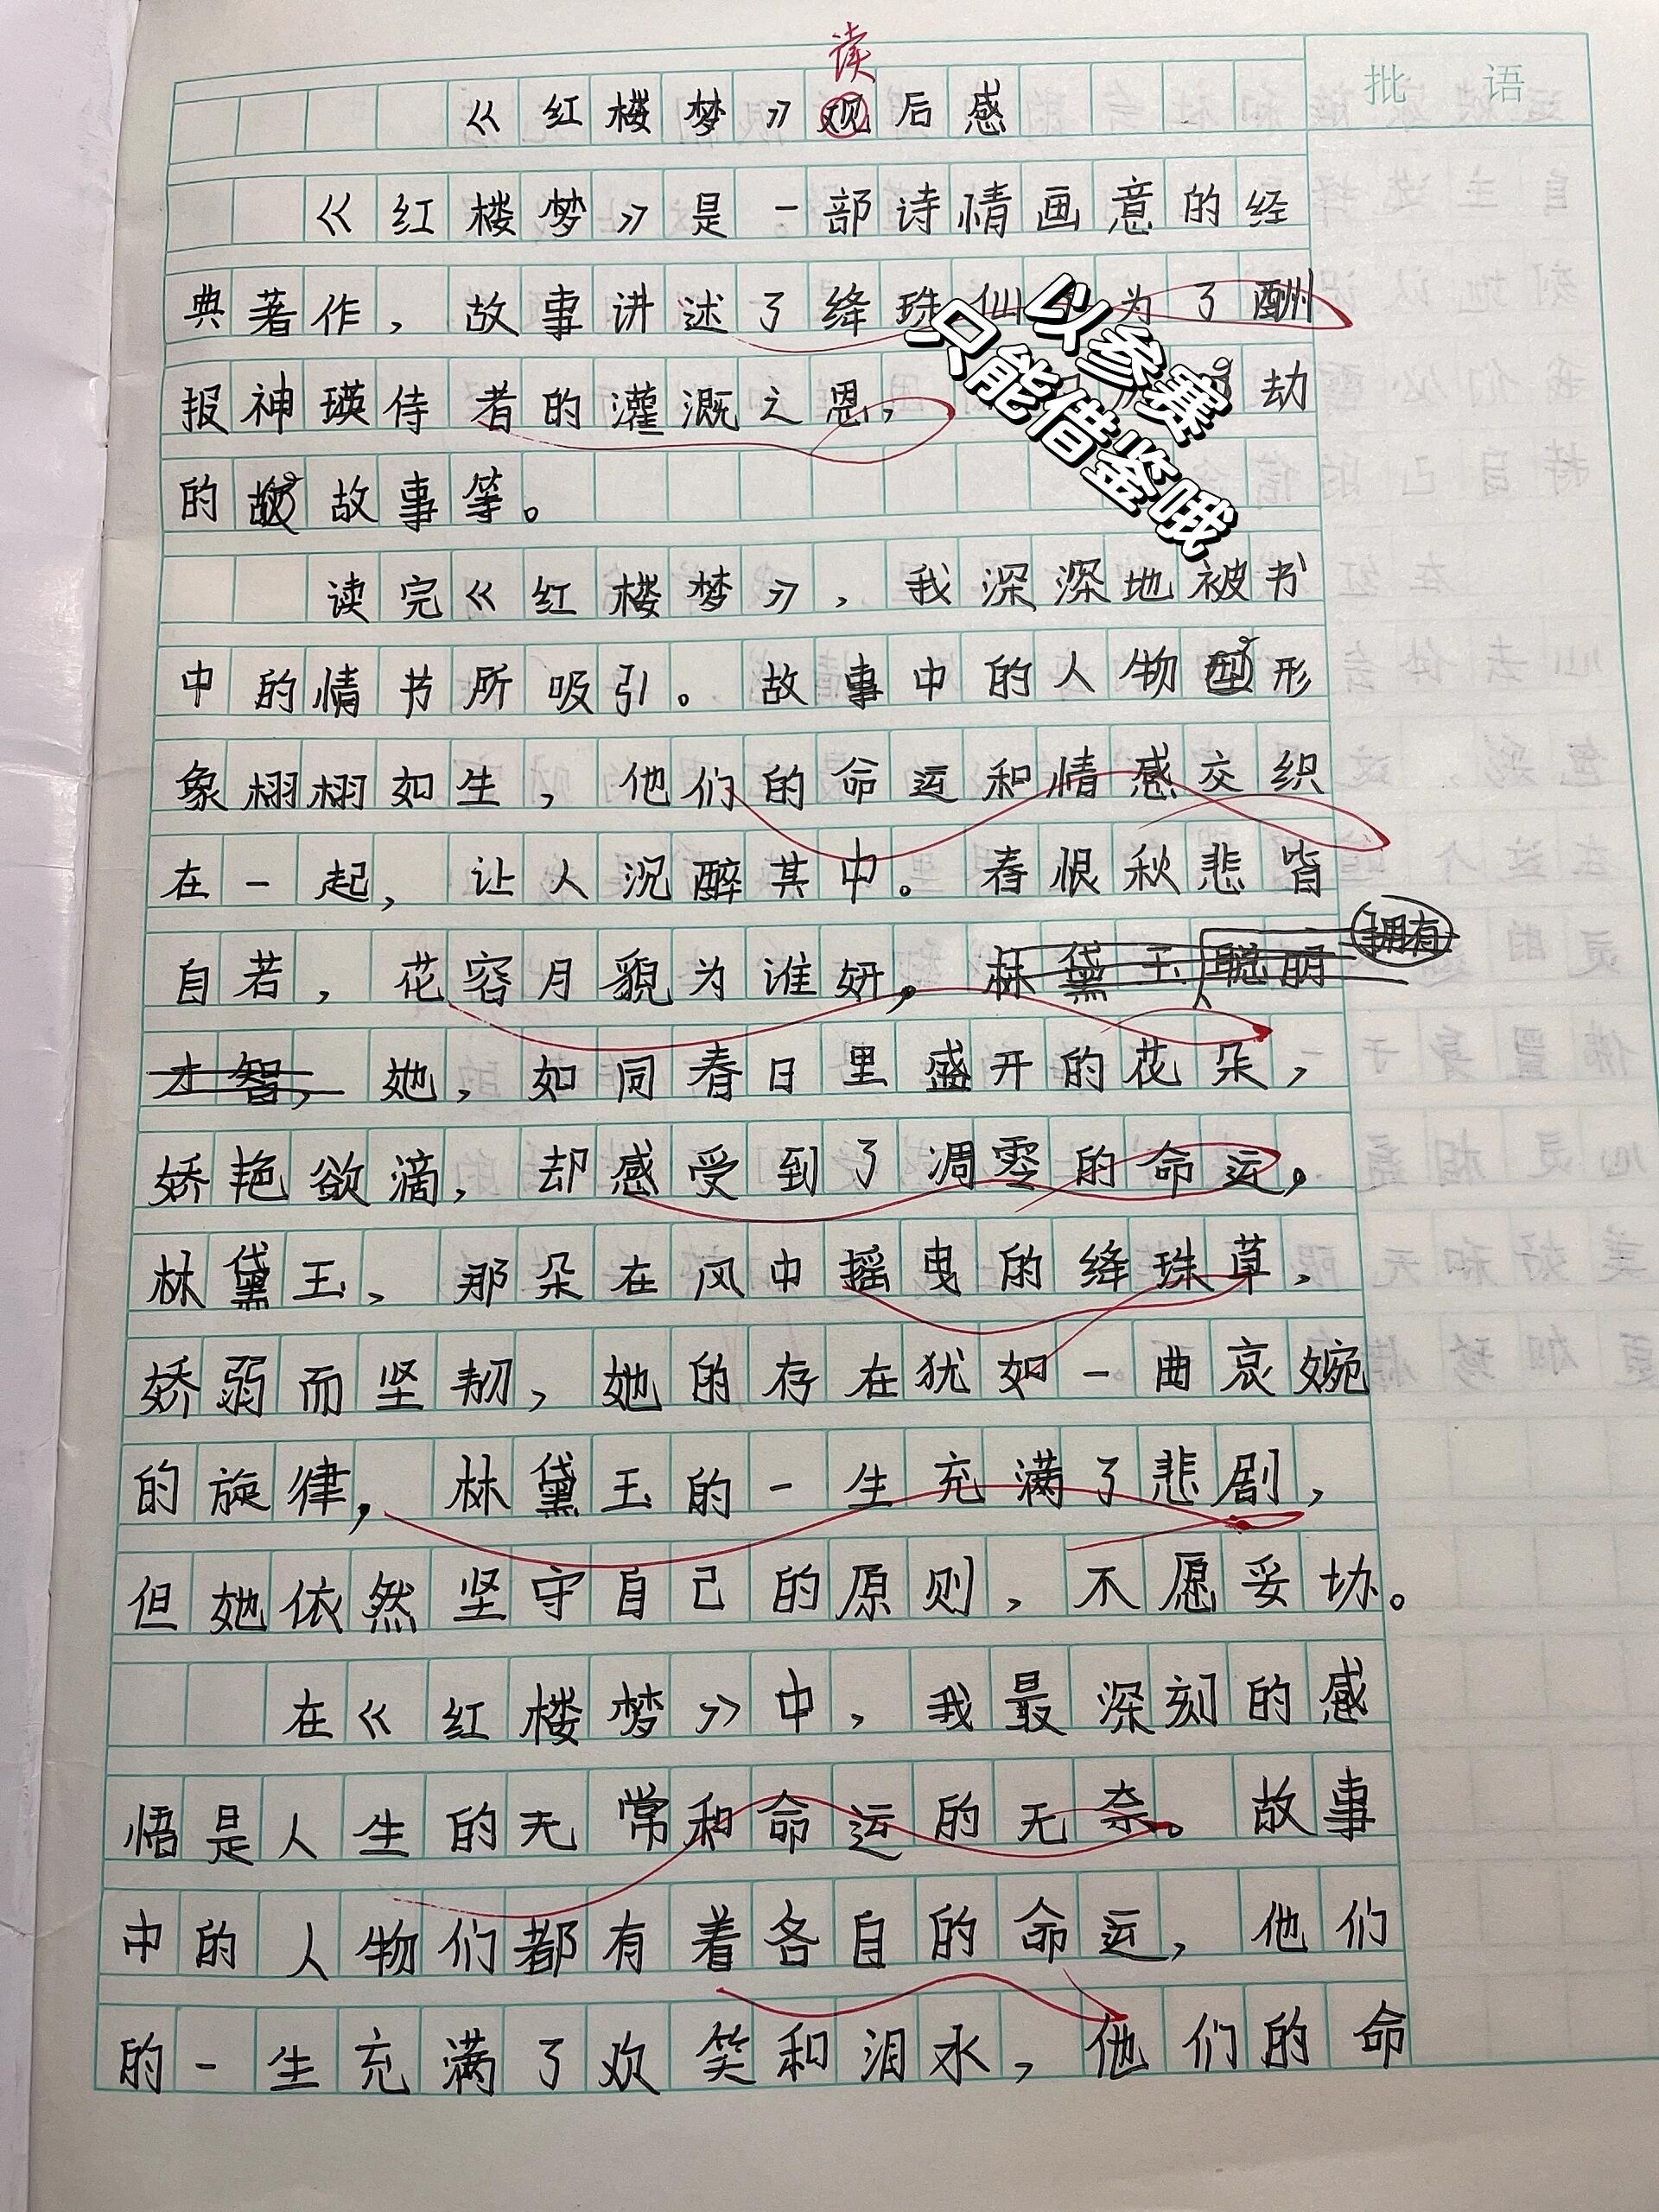 读
批 语
《红楼梦》观后感
《红楼梦》是一部诗情画意的经
典著作，故事讲述了绛珠仙 为了酬
报神瑛侍者的灌溉之恩， 劫
的 故事等。
以参赛
只能借鉴哦
读完《红楼梦》，我深深地被书
中的情书所吸引。故事中的人物 形
象栩栩如生，他们的命运和情感交织
在一起，让人沉醉其中。春恨秋悲皆
自若，花容月貌为谁妍，林黛玉聪明拥有
才智，她，如同春日里盛开的花朵，
娇艳欲滴，却感受到了凋零的命运。
林黛玉、那朵在风中摇曳的绛珠草，
娇弱而坚韧，她的存在犹如一曲哀婉
的旋律，林黛玉的一生充满了悲剧，
但她依然坚守自己的原则，不愿妥协。
在《红楼梦》中，我最深刻的感
悟是人生的无常和命运的无奈。故事
中的人物们都有着各自的命运，他们
的一生充满了欢笑和泪水，他们的命